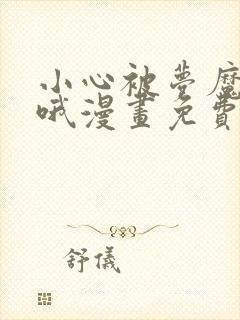 小心被夢魔
哦漫畫免費
舒儀